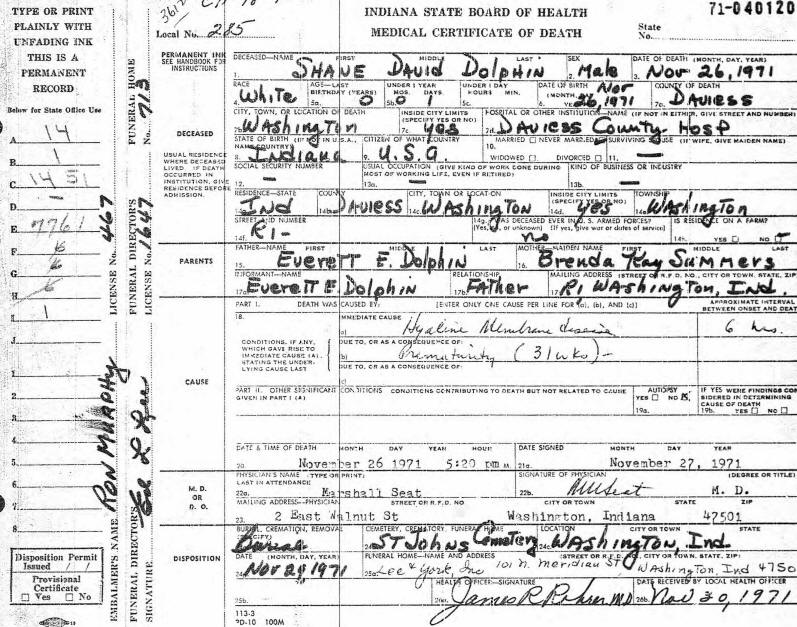 TYPE OR PRINT
PLAINLY WITH
UNFADING INK
THIS IS A
PERMANENT
RECORD
Below for State Office Use
A. 14
B. 1
C. 1451
D. -
E. 7761
F.
G.
H.
I. 1
Disposition Permit
Issued / /
Provisional
Certificate
☐ Yes ☐ No
EMBALMER'S NAME RON MURPHY LICENSE No. 467
FUNERAL DIRECTOR'S SIGNATURE
FUNERAL DIRECTOR'S LICENSE No. 1647
FUNERAL HOME No. 713
INDIANA STATE BOARD OF HEALTH
MEDICAL CERTIFICATE OF DEATH
71-040120
Local No. 285
State No.
PERMANENT INK
SEE HANDBOOK FOR
INSTRUCTIONS
DECEASED—NAME FIRST MIDDLE LAST SEX DATE OF DEATH (MONTH, DAY, YEAR)
1. SHANE DAVID DOLPHIN 2. Male 3. Nov 26, 1971
RACE AGE—LAST BIRTHDAY (YEARS) UNDER 1 YEAR MOS. DAYS UNDER 1 DAY HOURS MIN. DATE OF BIRTH (MONTH, COUNTY OF DEATH
4. White 5a. 0 5b. 0 1 5c. 6. Nov 26, 1971 7a. DAVIESS
DECEASED
CITY, TOWN, OR LOCATION OF DEATH INSIDE CITY LIMITS (SPECIFY YES OR NO) HOSPITAL OR OTHER INSTITUTION—NAME (IF NOT IN EITHER, GIVE STREET AND NUMBER)
7b. Washington 7c. yes 7d. DAVIESS County Hosp
USUAL RESIDENCE
WHERE DECEASED
LIVED. IF DEATH
OCCURRED IN
INSTITUTION, GIVE
RESIDENCE BEFORE
ADMISSION.
STATE OF BIRTH (IF NOT IN U.S.A., NAME COUNTRY) CITIZEN OF WHAT COUNTRY MARRIED ☐ NEVER MARRIED ☐ SURVIVING SPOUSE (IF WIFE, GIVE MAIDEN NAME)
8. Indiana 9. U.S.A. 10. WIDOWED ☐ DIVORCED ☐ 11. —
SOCIAL SECURITY NUMBER USUAL OCCUPATION (GIVE KIND OF WORK DONE DURING MOST OF WORKING LIFE, EVEN IF RETIRED) KIND OF BUSINESS OR INDUSTRY
12. — 13a. — 13b. —
RESIDENCE—STATE COUNTY CITY, TOWN OR LOCATION INSIDE CITY LIMITS (SPECIFY YES OR NO) TOWNSHIP
14a. Ind 14b. DAVIESS 14c. WASHINGTON 14d. yes 14e. WASHINGTON
STREET AND NUMBER 14g. WAS DECEASED EVER IN U.S. ARMED FORCES? (Yes, no, or unknown) (If yes, give war or dates of service) IS RESIDENCE ON A FARM?
14f. R1- no 14h. YES ☐ NO
PARENTS
FATHER—NAME FIRST MIDDLE LAST MOTHER—MAIDEN NAME FIRST MIDDLE LAST
15. Everett E. Dolphin 16. Brenda Kay Summers
INFORMANT—NAME RELATIONSHIP MAILING ADDRESS (STREET OR R.F.D. NO., CITY OR TOWN, STATE, ZIP)
17a. Everett E. Dolphin 17b. Father 17c. R1 WASHINGTON, Ind.
CAUSE
PART I. DEATH WAS CAUSED BY: [ENTER ONLY ONE CAUSE PER LINE FOR (a), (b), AND (c)] APPROXIMATE INTERVAL BETWEEN ONSET AND DEATH
18. IMMEDIATE CAUSE
(a) Hyaline Membrane disease 6 hrs.
CONDITIONS, IF ANY,
WHICH GAVE RISE TO
IMMEDIATE CAUSE (A),
STATING THE UNDER-
LYING CAUSE LAST
DUE TO, OR AS A CONSEQUENCE OF:
(b) Prematurity (31 wks) -
DUE TO, OR AS A CONSEQUENCE OF:
(c)
PART II. OTHER SIGNIFICANT CONDITIONS CONDITIONS CONTRIBUTING TO DEATH BUT NOT RELATED TO CAUSE GIVEN IN PART I (A) AUTOPSY YES ☐ NO ☒ IF YES WERE FINDINGS CONSIDERED IN DETERMINING CAUSE OF DEATH
19a. 19b. YES ☐ NO ☐
DATE & TIME OF DEATH MONTH DAY YEAR HOUR DATE SIGNED MONTH DAY YEAR
20. November 26 1971 5:20 pm M. 21a. November 27, 1971
M. D.
OR
D. O.
PHYSICIAN'S NAME (TYPE OR PRINT) LAST IN ATTENDANCE SIGNATURE OF PHYSICIAN (DEGREE OR TITLE)
22a. Marshall Seat 22b. MM Seat M. D.
MAILING ADDRESS—PHYSICIAN STREET OR R.F.D. NO. CITY OR TOWN STATE ZIP
23. 2 East Walnut St Washington, Indiana 47501
DISPOSITION
BURIAL, CREMATION, REMOVAL (SPECIFY) CEMETERY, CREMATORY, FUNERAL HOME LOCATION CITY OR TOWN STATE
Burial 24b. ST JOHNS Cemetery 24c. WASHINGTON, Ind.
DATE (MONTH, DAY, YEAR) FUNERAL HOME—NAME AND ADDRESS (STREET OR R.F.D. NO., CITY OR TOWN, STATE, ZIP)
24d. Nov 29, 1971 25a. Lee & York, Inc 101 N. Meridian St, Washington, Ind 4750
HEALTH OFFICER—SIGNATURE DATE RECEIVED BY LOCAL HEALTH OFFICER
25b. 26a. James R Rohrer MD 26b. Nov 30, 1971
113-3
PD-10 100M